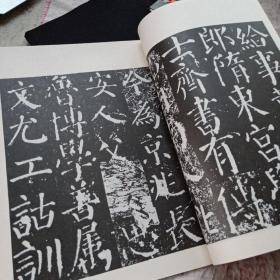 給事
郎隋東宮
士齊書有傳
今為京兆長
安人父
魯博學善屬
文尤工詁訓